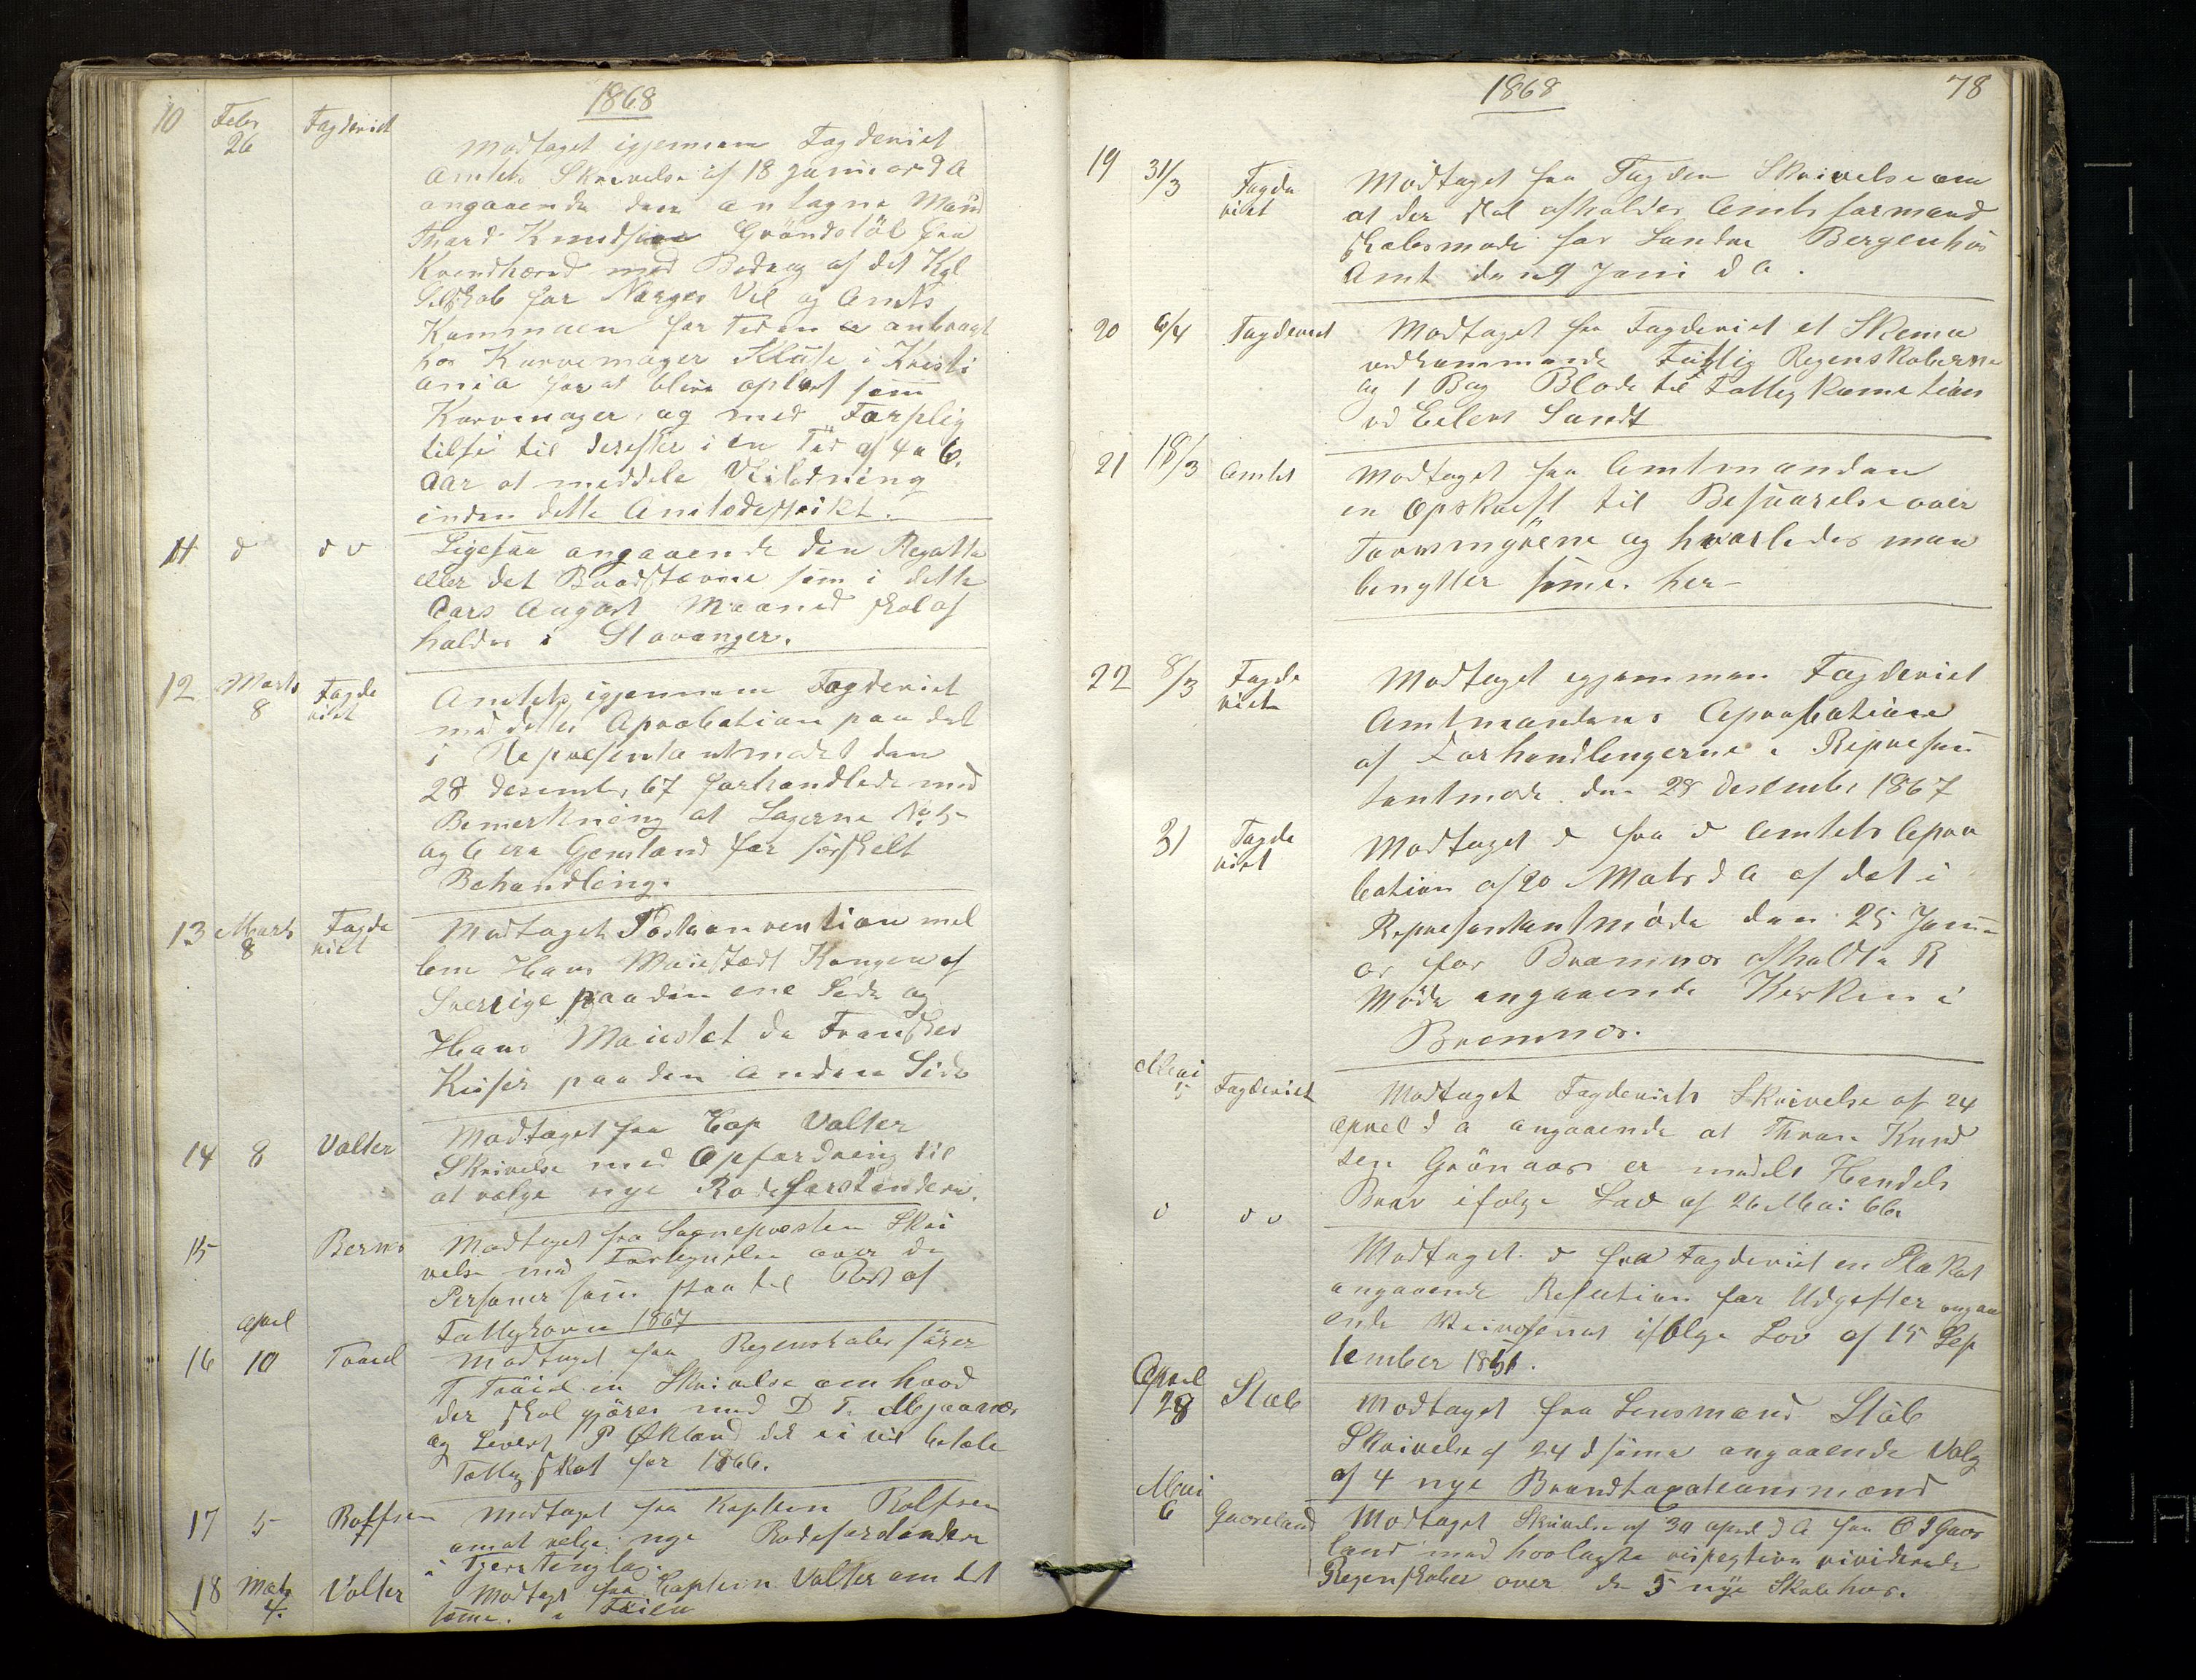 1868
10 Febr 26 Fogderiet
Modtaget igjennem Fogderiet
Amtets Skrivelse af 18 Januar d A
angaaende den antagne Mand
Knudsen Gröndstöl fra
Kvindherred med Bedrag af det Kgl
Selskab for Norges Vel og Amts
Kommunen for Tiden er anbragt
hos Kurvemager Klute i Kristi
ania for at blive oplært som
Kurvmager, og med Forplig
tilse til derefter i en Tid af 4 a 6
Aar at meddele Veiledning
inden dette Amtsdestrikt.
11 d d d Ligesaa angaaende den Regatta
eller det Baadstævne som i dette
Aars August Maaned skal af
holdes i Stavanger.
12 Marts 8 Fogde riet
Amtets igjennem Fogderiet
meddelte Aprobation paa det
i Representantmødet den
28 desember 67 forhandlede med
Bemerkning at Sagerne No 5
og 6 ere Gjenstand for sörskelt
Behandling.
13 Marts 8 Fogde riet
Modtaget Postkonvention mel
lem Hans Maiestædt Kongen af
Sverrige paa den ene Side og
Hans Maiestet de Franskes
Keiser paa den anden Side
14 8 Valter
Modtaget fra Cap Valter
Skrivelse med Opfordring til
at vælge nye Rodeforstandere.
15 Modtaget fra Sognepresten Skri
velse med Fortegnelse over de
Personer som staa til Rest af
Fattigkassen 1867
April
16 10 Modtaget fra Regenskabsförer
T en Skrivelse om hvad
der skal gjöres med D T.
og Severt P Økland det ei vil betale
Fattigskat for 1866.
17 5 Rolfsen Modtaget fra Kaptein Rolfsen
om at velge nye Rodeforstandere
i
18 Mats 4. Valter Modtaget fra Kaptein Valter om det
samme i
1868 78
19 31/3 Fogde riet
Modtaget fra Fogden Skrivelse om
at der skal afholdes Amtsformand
skabsmøde for Söndre Bergenhus
Amt den 9 Juni d A.
20 6/4 Fogderiet Modtaget fra Fogderiet et Skema
vedkommende Fattig Regenskaberne
og 1 Bog Blade til Fattigkometioen
ved Eilert Sundt
21 18/3 Amtet Modtaget fra Amtmanden
en Opskrift til Besvarelse over
Torvmyrene og hvorledes man
benytter samme her-
22 8/3 Fogde riet
Modtaget igjennem Fogderiet
Amtmandens Aprobation
af Forhandlingerne i Represen
tantmøde den 28 Desember 1867
31 Fogde riet
Modtaget d fra d Amtets Apro
bation af 20 Mats d A af det i
Representantmöde den 25 Janu
ar for Bremnes afholdte R
Möde angaaende Kirken i
Bremnes.
Mai 5 Fogderiet Modtaget Fogderiets Skrivelse af 24
aprel d a angaaende at Knud
sen Grönaas er meddelt Handels
Brev ifolge Lov af 26 Mai 66.
d d d
Modtaget d fra Fogderiet en Plakat
angaaende Refution for Udgifter angaa
ende ifölge Lov af 15 Sep
tember 1851.
Aprel 28 Stab Modtaget fra Lensmand Stab
Skrivelse af 24 d samme angaaende Valg
af 4 nye Brandtaxationsmænd
Mai 6 Modtaget Skrivelse af 30 aprel d A fra
land med hoslagte respegtive
Regenskaber over de 5 nye Skolehus.